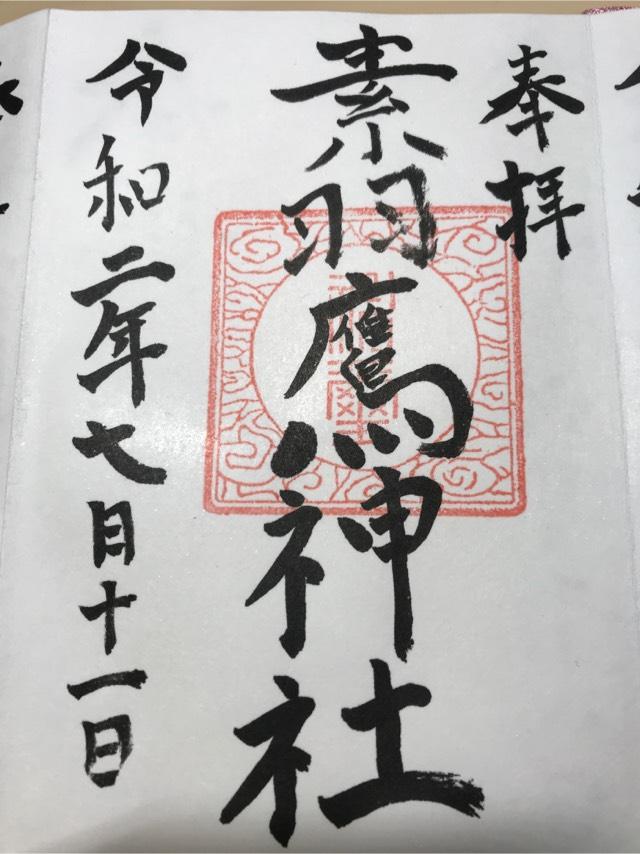 奉拝
素羽鷹神社
令和二年七月十一日